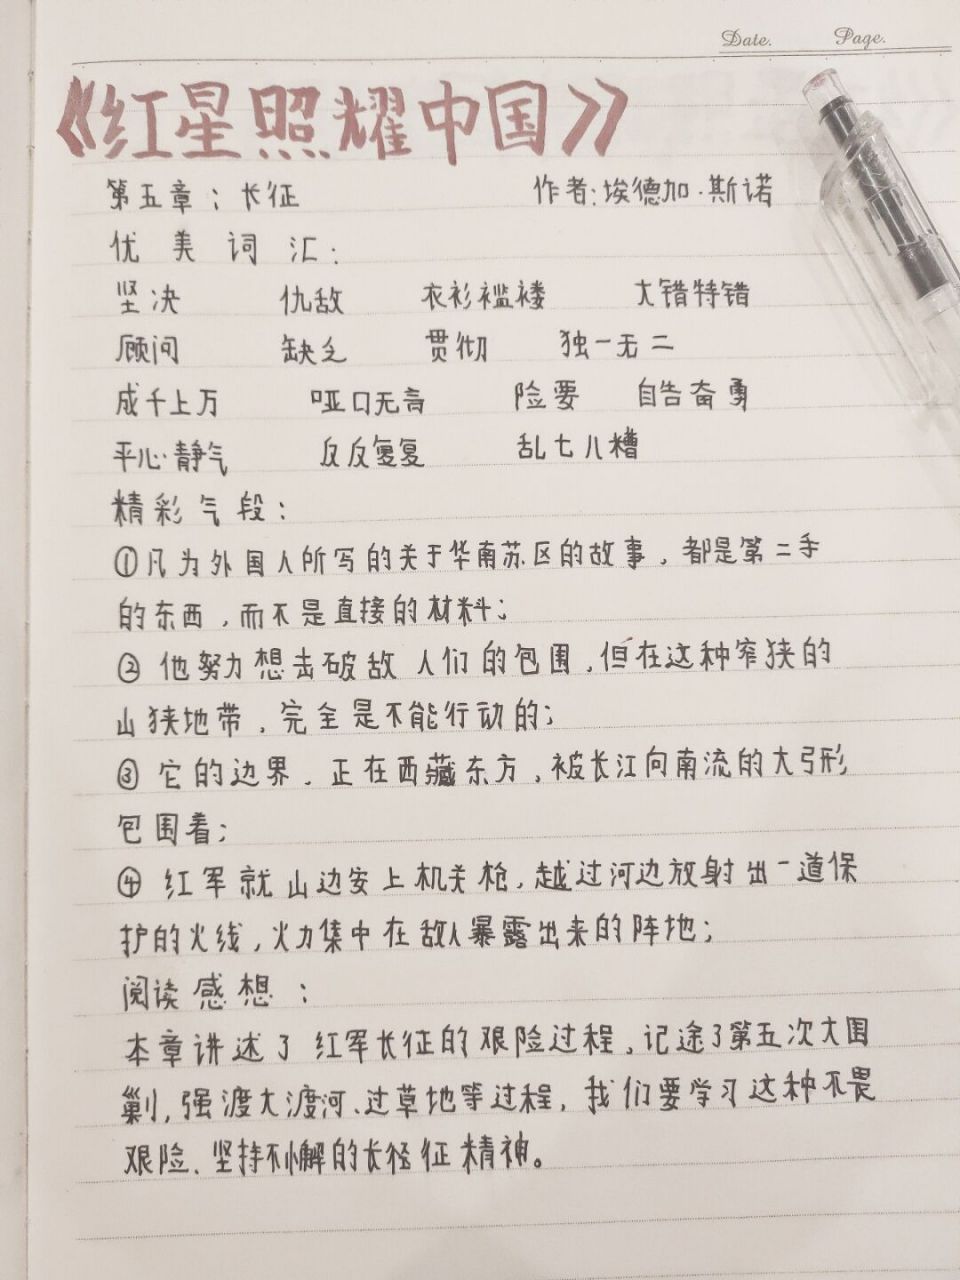 Date. Page.
《红星照耀中国》
第五章：长征 作者:埃德加·斯诺
优美词汇：
坚决 仇敌 衣衫褴褛 大错特错
顾问 缺乏 贯彻 独一无二
成千上万 哑口无言 险要 自告奋勇
平心静气 反反复复 乱七八糟
精彩气段：
①凡为外国人所写的关于华南苏区的故事，都是第二手
的东西，而不是直接的材料；
② 他努力想击破敌人们的包围，但在这种窄狭的
山狭地带，完全是不能行动的；
③ 它的边界，正在西藏东方，被长江向南流的大弓形
包围着；
④ 红军就山边安上机关枪，越过河边放射出一道保
护的火线，火力集中在敌人暴露出来的阵地；
阅读感想：
本章讲述了红军长征的艰险过程，记途了第五次大围
剿，强渡大渡河、过草地等过程，我们要学习这种不畏
艰险、坚持不懈的长径征精神。